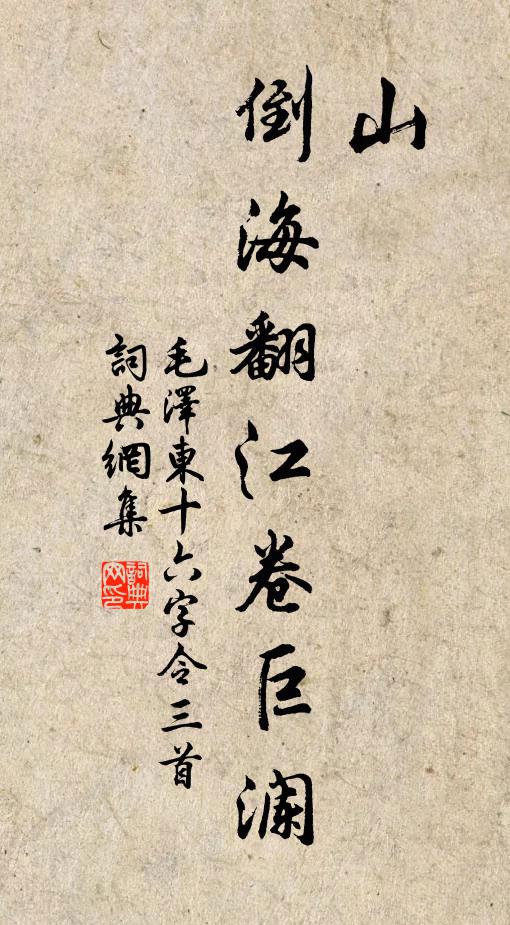 山
倒海翻江卷巨澜
毛澤東十六字令三首
詞典網集
詞典网印